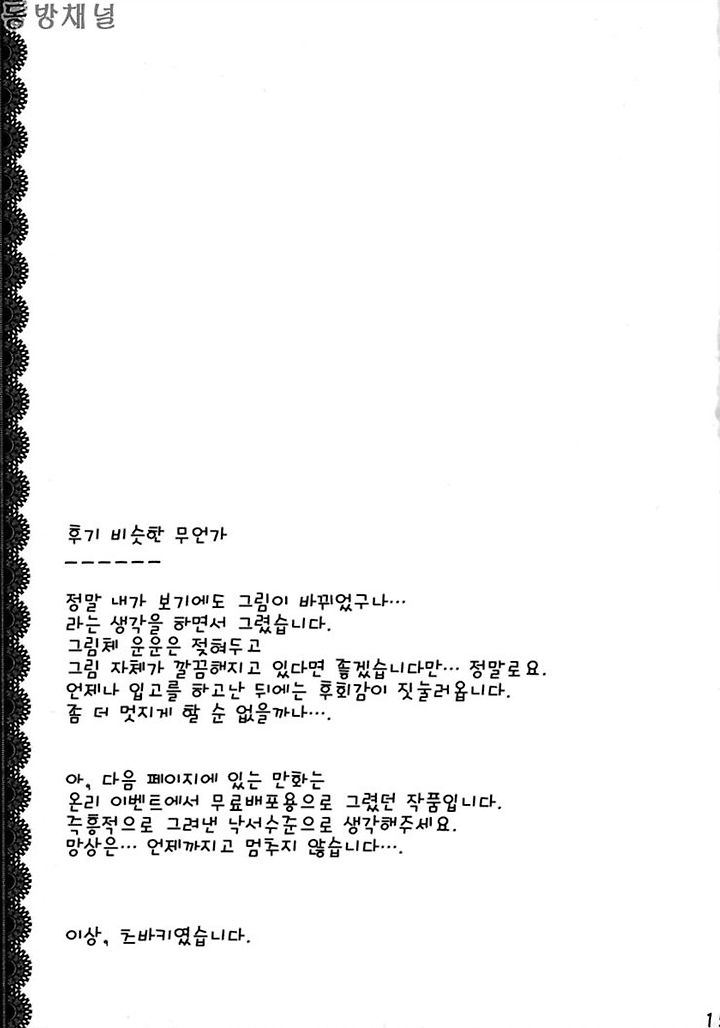 동방채널
후기 비슷한 무언가
------
정말 내가 보기에도 그림이 바뀌었구나…
라는 생각을 하면서 그렸습니다.
그림체 운운은 젖혀두고
그림 자체가 깔끔해지고 있다면 좋겠습니다만… 정말로요.
언제나 입고를 하고난 뒤에는 후회감이 짓눌러옵니다.
좀 더 멋지게 할 순 없을까나….
아, 다음 페이지에 있는 만화는
온리 이벤트에서 무료배포용으로 그렸던 작품입니다.
즉흥적으로 그려낸 낙서수준으로 생각해주세요.
망상은… 언제까지고 멈추지 않습니다….
이상, 츠바키였습니다.